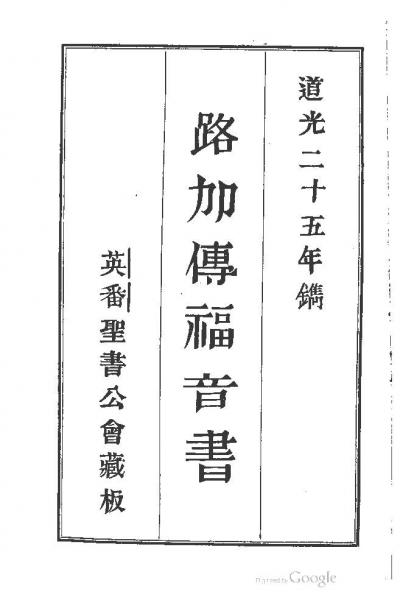 道光二十五年鐫
路加傳福音書
英番聖書公會藏板
Digitized by Google